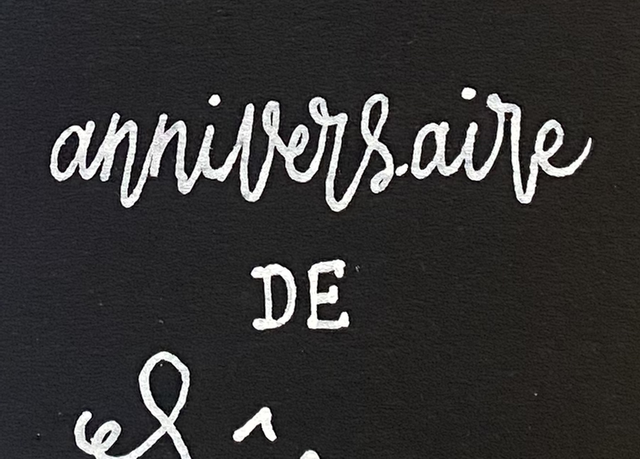 anniversaire
DE